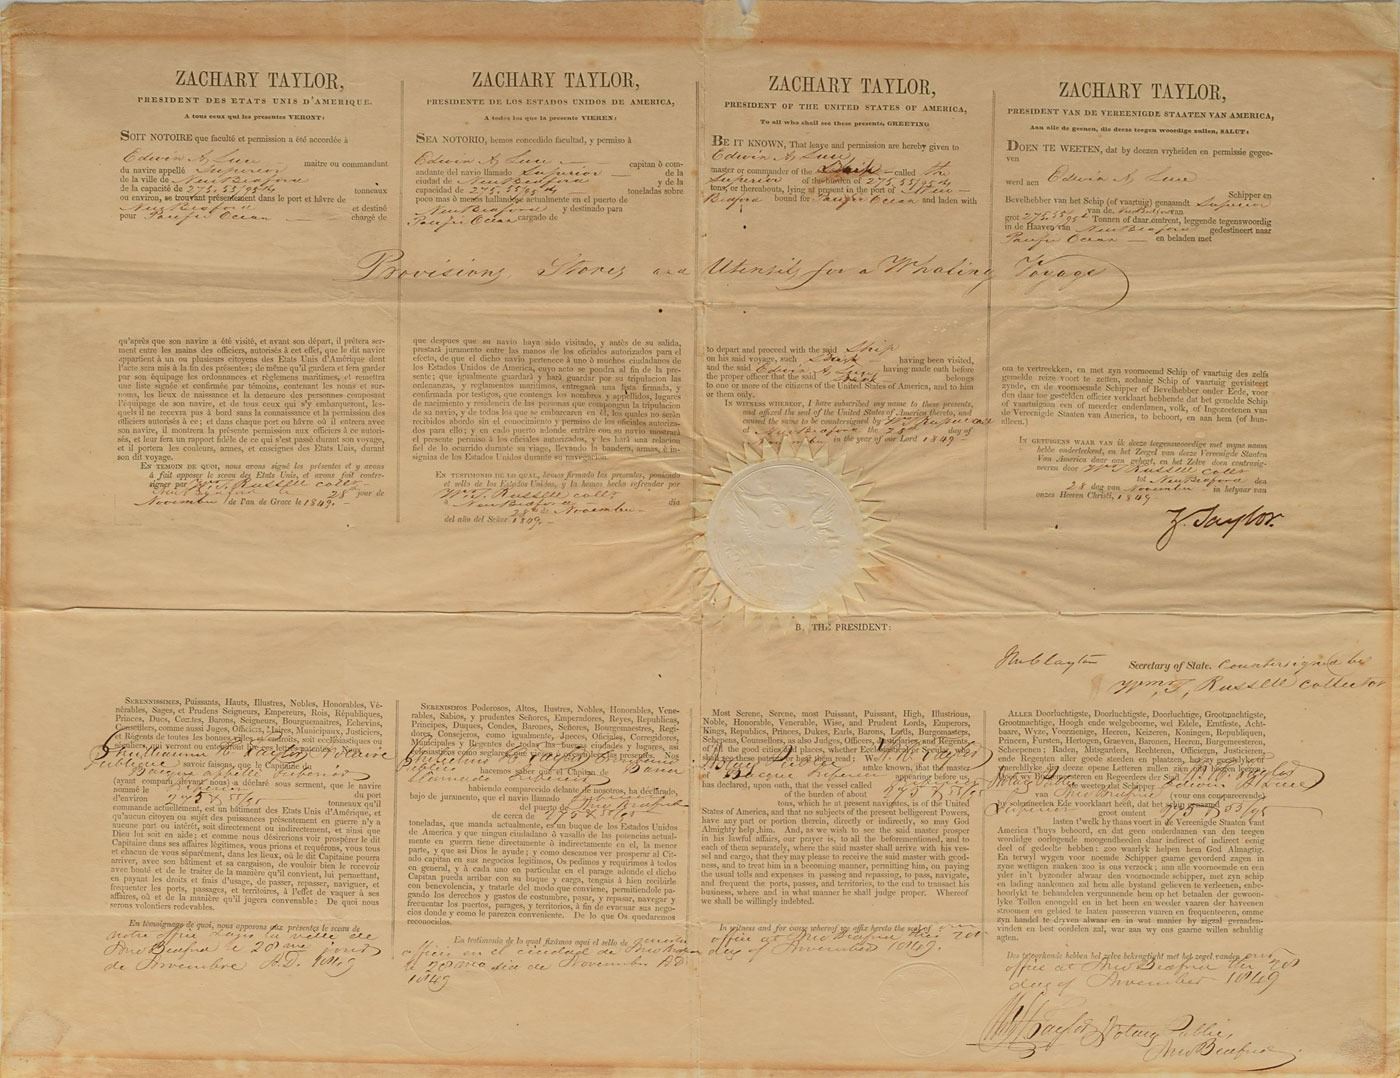 ZACHARY TAYLOR,
PRESIDENT DES ETATS UNIS D'AMERIQUE.
A tous ceux qui les presentes VERONT:
SOIT NOTOIRE que faculté et permission a été accordée à
Edwin A. Luce maitre ou commandant
du navire appellé Superior
de la ville de New Bedford
de la capacité de 275.55/95 tonneaux
ou environ, se trouvant présentement dans le port et hâvre de
New Bedford et destiné
pour Pacific Ocean chargé de
ZACHARY TAYLOR,
PRESIDENTE DE LOS ESTADOS UNIDOS DE AMERICA,
A todos los que la presente VIEREN:
SEA NOTORIO, hemos concedido facultad, y permiso à
Edwin A. Luce capitan ò com-
andante del navio llamado Superior de la
ciudad de New Bedford y de la
capacidad de 275.55/95 toneladas sobre
poco mas ò menos hallandose actualmente en el puerto de
New Bedford y destinado para
Pacific Ocean cargado de
ZACHARY TAYLOR,
PRESIDENT OF THE UNITED STATES OF AMERICA,
To all who shall see these presents, GREETING
BE IT KNOWN, That leave and permission are hereby given to
Edwin A. Luce
master or commander of the Ship called the
Superior of the burden of 275.55/95
tons, or thereabouts, lying at present in the port of New
Bedford bound for Pacific Ocean and laden with
ZACHARY TAYLOR,
PRESIDENT VAN DE VEREENIGDE STAATEN VAN AMERICA,
Aan alle de geenen, die deeze teegen woordige zullen, SALUT:
DOEN TE WEETEN, dat by deezen vryheiden en permissie gegee-
ven
werd aen Edwin A. Luce Schipper en
Bevelhebber van het Schip (of vaartuig) genaamdt Superior
van de New Bedford van
grot 275.55/95 Tonnen of daar omtrent, leggende tegenswoordig
in de Haaven van New Bedford gedestineert naar
Pacific Ocean en beladen met
Provisions, Stores and Utensils for a Whaling Voyage
qu'après que son navire a été visité, et avant son départ, il prêtera ser-
ment entre les mains des officiers, autorisés à cet effet, que le dit navire
appartient à un ou plusieurs citoyens des Etats Unis d'Amérique dont
l'acte sera mis à la fin des présentes; de même qu'il gardera et fera garder
par son équipage les ordonnances et règlemens maritimes, et remettra
une liste signée et confirmée par témoins, contenant les noms et sur-
noms, les lieux de naissance et la demeure des personnes composant
l'équipage de son navire, et de tous ceux qui s'y embarqueront, les-
quels il ne recevra pas à bord sans la connaissance et la permission des
officiers autorisés à ce; et dans chaque port ou hâvre où il entrera avec
son navire, il montrera la présente permission aux officiers à ce autori-
sés, et leur fera un rapport fidèle de ce qui s'est passé durant son voyage,
et il portera les couleurs, armes, et enseignes des Etats Unis, durant
son dit voyage.
EN TEMOIN DE QUOI, nous avons signé les présentes et y avons
à fait apposer le sceau des Etats Unis, et avons fait contre-
signer par Wm. T. Russell collr.
New Bedford le 28 jour de
Novembre de l'an de Grace le 1849.
que despues que su navio haya sido visitado, y antes de su salida,
prestará juramento entre las manos de los oficiales autorizados para el
efecto, de que el dicho navio pertenece à uno ò muchos ciudadanos de
los Estados Unidos de America, cuyo acto se pondra al fin de la pre-
sente; que igualmente guardará y hará guardar por su tripulacion las
ordenanzas, y reglamentos maritimos, entregará una lista firmada, y
confirmada por testigos, que contenga los nombres y appellidos, lugares
de nacimiento y residencia de las personas que compongan la tripulacion
de su navio, y de todos los que se embarcaren en él, los quales no serán
recibidos abordo sin el conocimiento y permiso de los oficiales autoriza-
dos para ello; y en cada puerto adonde entre con su navio mostrará
el presente permiso à los oficiales autorizados, y les hará una relacion
fiel de lo ocurrido durante su viage, llevando la bandera, armas, é in-
signias de los Estados Unidos durante su navegacion.
EN TESTIMONIO DE LO QUAL, hemos firmado las presentes, poniendo
el sello de los Estados Unidos, y la hemos hecho refrendar por
Wm. T. Russell collr.
a New Bedford dia
28 de Novembre
del año del Señor 1849.
to depart and proceed with the said Ship
on his voyage, such Ship having been visited,
and the said Edwin A. Luce having made oath before
the proper officer that the said Ship belongs
to one or more of the citizens of the United States of America, and to him
or them only.
IN WITNESS WHEREOF, I have subscribed my name to these presents,
and affixed the seal of the United States of America thereto, and
caused the same to be countersigned by Wm. T. Russell
at New Bedford the 28 day of
November in the year of our Lord 1849
om te vertrekken, en met zyn voornoemd Schip of vaartuig des zelfs
gemelde reize voort te zetten, zodanig Schip of vaartuig gevisiteert
zynde, en de voornoemde Schipper of Bevelhebber onder Eede, voor
den daar toe gestelden officier verklaart hebbende dat het gemelde Schip
of vaartuigen een of meerder onderdanen, volk, of Ingezeetenen van
de Vereenigde Staaten van America, to behoort, en aen hem (of hun-
alleen.)
IN GETUIGENS WAAR VAN ik deeze teegenswoordige met myne naam
hebbe onderteekent, en het Zeegel van deeze Vereenigde Staaten
Van America daar aen gehegt, en het Zelve doen contrasig-
neeren door Wm. T. Russell collr.
tot New Bedford den
28 dag van November in hetjaar van
onzes Heeren Christi, 1849
Z. Taylor.
THE PRESIDENT:
Jno. M. Clayton Secretary of State. Countersigned by
Wm. T. Russell Collector
SERENISSIMES, Puissants, Hauts, Illustres, Nobles, Honorables, Vé-
nérables, Sages, et Prudens Seigneurs, Empereurs, Rois, Républiques,
Princes, Ducs, Comtes, Barons, Seigneurs, Bourguemaitres, Echevins,
Conseillers, comme aussi Juges, Officiers, Maires, Municipaux, Justiciers,
et Régents de toutes les bonnes villes et endroits, soit ecclésiastiques ou
Guillaume H. Taylor Notaire
Publique savoir faisons, que le Capitaine du
Barque appellé Superior
(ayant comparu devant nous) a déclaré sous serment, que le navire
nommé le Superior du port
d'environ 275 & 55/95 tonneaux qu'il
commande actuellement, est un bâtiment des Etats Unis d'Amérique, et
qu'aucun ou sujet des puissances présentement en guerre n'y a
aucune part ou intérêt, soit directement ou indirectement, et ainsi que
Dieu lui soit en aide; et comme nous désirerions voir prospérer le dit
Capitaine dans ses affaires légitimes, vous prions et requérons, vous tous
et chacun de vous séparément, dans les lieux, où le dit Capitaine pourra
arriver, avec son bâtiment et sa cargaison, de vouloir bien le recevoir
avec bonté et de le traiter de la manière qu'il convient, lui permettant,
en payant les droits et frais d'usage, de passer, repasser, naviguer, et
frequenter les ports, passages, et territoires, à l'effet de vaquer à ses
affaires, où et de la manière qu'il jugera convenable: De quoi nous
serons volontiers redevables.
En témoignage de quoi, nous apposons aux présentes le sceau de
notre office dans la ville de
New Bedford le 28me jour
de Novembre A.D. 1849
SERENISSIMOS Poderosos, Altos, Ilustres, Nobles, Honorables, Vene-
rables, Sabios, y prudentes Señores, Emperadores, Reyes, Republicas,
Principes, Duques, Condes, Barones, Señores, Bourgomaestres, Regi-
dores, Consejeros, como igualmente, Jueces, Oficiales, Corregidores,
Municipales y Regentes de todas las buenas ciudades y lugares, asi
hacemos saber que el Capitan de Barca
llamado Superior
habiendo comparecido delante de nosotros, ha declarado,
bajo de juramento, que el navio llamado Superior
del puerto de New Bedford
de cerca de 275 & 55/95
toneladas, que manda actualmente, es un buque de los Estados Unidos
de America y que ningun ciudadano ò vasallo de las potencias actualmente
en guerra tiene directamente ò indirectamente en el, la menor
parte, y que asi Dios le ayude; y como deseamos ver prosperar al Ci-
tado capitan en sus negocios legitimos, Os pedimos y requirimos à todos
en general, y à cada uno en particular en el parage adonde el dicho
Capitan pueda arribar con su buque y carga, tengan à bien recibirle
con benevolencia, y tratarle del modo que conviene, permitiendole pa-
gando los derechos y gastos de costumbre, pasar, y repasar, navegar y
frecuentar los puertos, parages, y territorios, à fin de evacuar sus nego-
cios donde y como le parezca conveniente. De lo que Os quedaremos
reconocidos.
En testimonio de la qual fixamos aqui el sello de nuestro
officio en el ciudad de New Bedford
le 28mo dia de November A.D.
1849
MOST Serene, Serene, most Puissant, Puissant, High, Illustrious,
Noble, Honorable, Venerable, Wise, and Prudent Lords, Emperors,
Kings, Republics, Princes, Dukes, Earls, Barons, Lords, Burgomasters,
Schepens, Counsellors, as also Judges, Officers, Justiciaries, and Regents
of all the good cities and places, whether Ecclesiastical or Secular, who
shall see these patents, or hear them read: We W. H. Taylor
Notary Public make known, that the master
of Barque Superior appearing before us,
has declared, upon oath, that the vessel called
of the burden of about 275 & 55/95
tons, which he at present navigates, is of the United
States of America, and that no subjects of the present belligerent Powers,
have any part or portion therein, directly or indirectly, so may God
Almighty help him. And, as we wish to see the said master prosper
in his lawful affairs, our prayer is, to all the beforementioned, and to
each of them separately, where the said master shall arrive with his ves-
sel and cargo, that they may please to receive the said master with good-
ness, and to treat him in a becoming manner, permitting him, on paying
the usual tolls and expenses in passing and repassing, to pass, navigate,
and frequent the ports, passes, and territories, to the end to transact his
business, where and in what manner he shall judge proper. Whereof
we shall be willingly indebted.
In witness and for cause whereof we affix hereto the seal of our
office at New Bedford this 28th
day of November 1849.
ALLER Doorluchtigste, Doorluchtige, Grootmachtigste,
Grootmachtige, Hoogh ende welgeboorne, wel Edele, Erntfeste, Acht-
baare, Wyze, Voorsienige, Heeren, Keizeren, Koningen, Republiquen,
Princen, Fursten, Hertogen, Graeven, Baronen, Heeren, Burgemeesteren,
Scheepenen; Raden, Mitsgaders, Rechteren, Officieren, Justicieren,
ende Regenten aller goede steeden en plaatsen, het zy geestelyke of
wereldlyke die deeze opene Letteren zullen zien of te hooren leezen:
W. H. Taylor
Notary Public doen te weeten dat Schipper Edwin A. Luce
van New Bedford voor ons compareerende
by solemneelen Ede voorklaart heeft, dat het schip genaamd
Superior groot omtrent 275 & 55/95
lasten t'welk hy thans voert in de Vereenigde Staaten Van
America t'huys behoord, en dat geen onderdaanen van den teegen
wordige oorlogende moogendheeden daar indirect of indirect eenig
deel of gedeelte hebben: zoo waarlyk helpen hem God Almagtig.
En terwyl wygen voor noemde Schipper gaarne gevorderd zagen in
zyne wettigen zaken zoo is ons verzoek; aan alle voornoemde en een
yder in't byzonder alwaar den voornoemde schipper, met zyn schip
en lading aankomen zal hem alle bystand gelieven te verleenen, enbe-
hoorlykt te behandelen vergunnende hem op het betaalen der gewoon-
lyke Tollen enongelden en in het heen en weeder vaaren der haevenen
stroomen en gebied te laaten passeeren vaaren en frequenteeren, omme
zyn handel te dryven alwaar en in wat manier by zigzal geraaden-
vinden en best oordelen zal, war aan wy ons gaarne willen schuldig
agten.
Des teroorkonde hebben het zelve bekragtight met het zegel vanden ons
office at New Bedford the 28
day of November 1849
Wm. H. Taylor Notary Public,
New Bedford